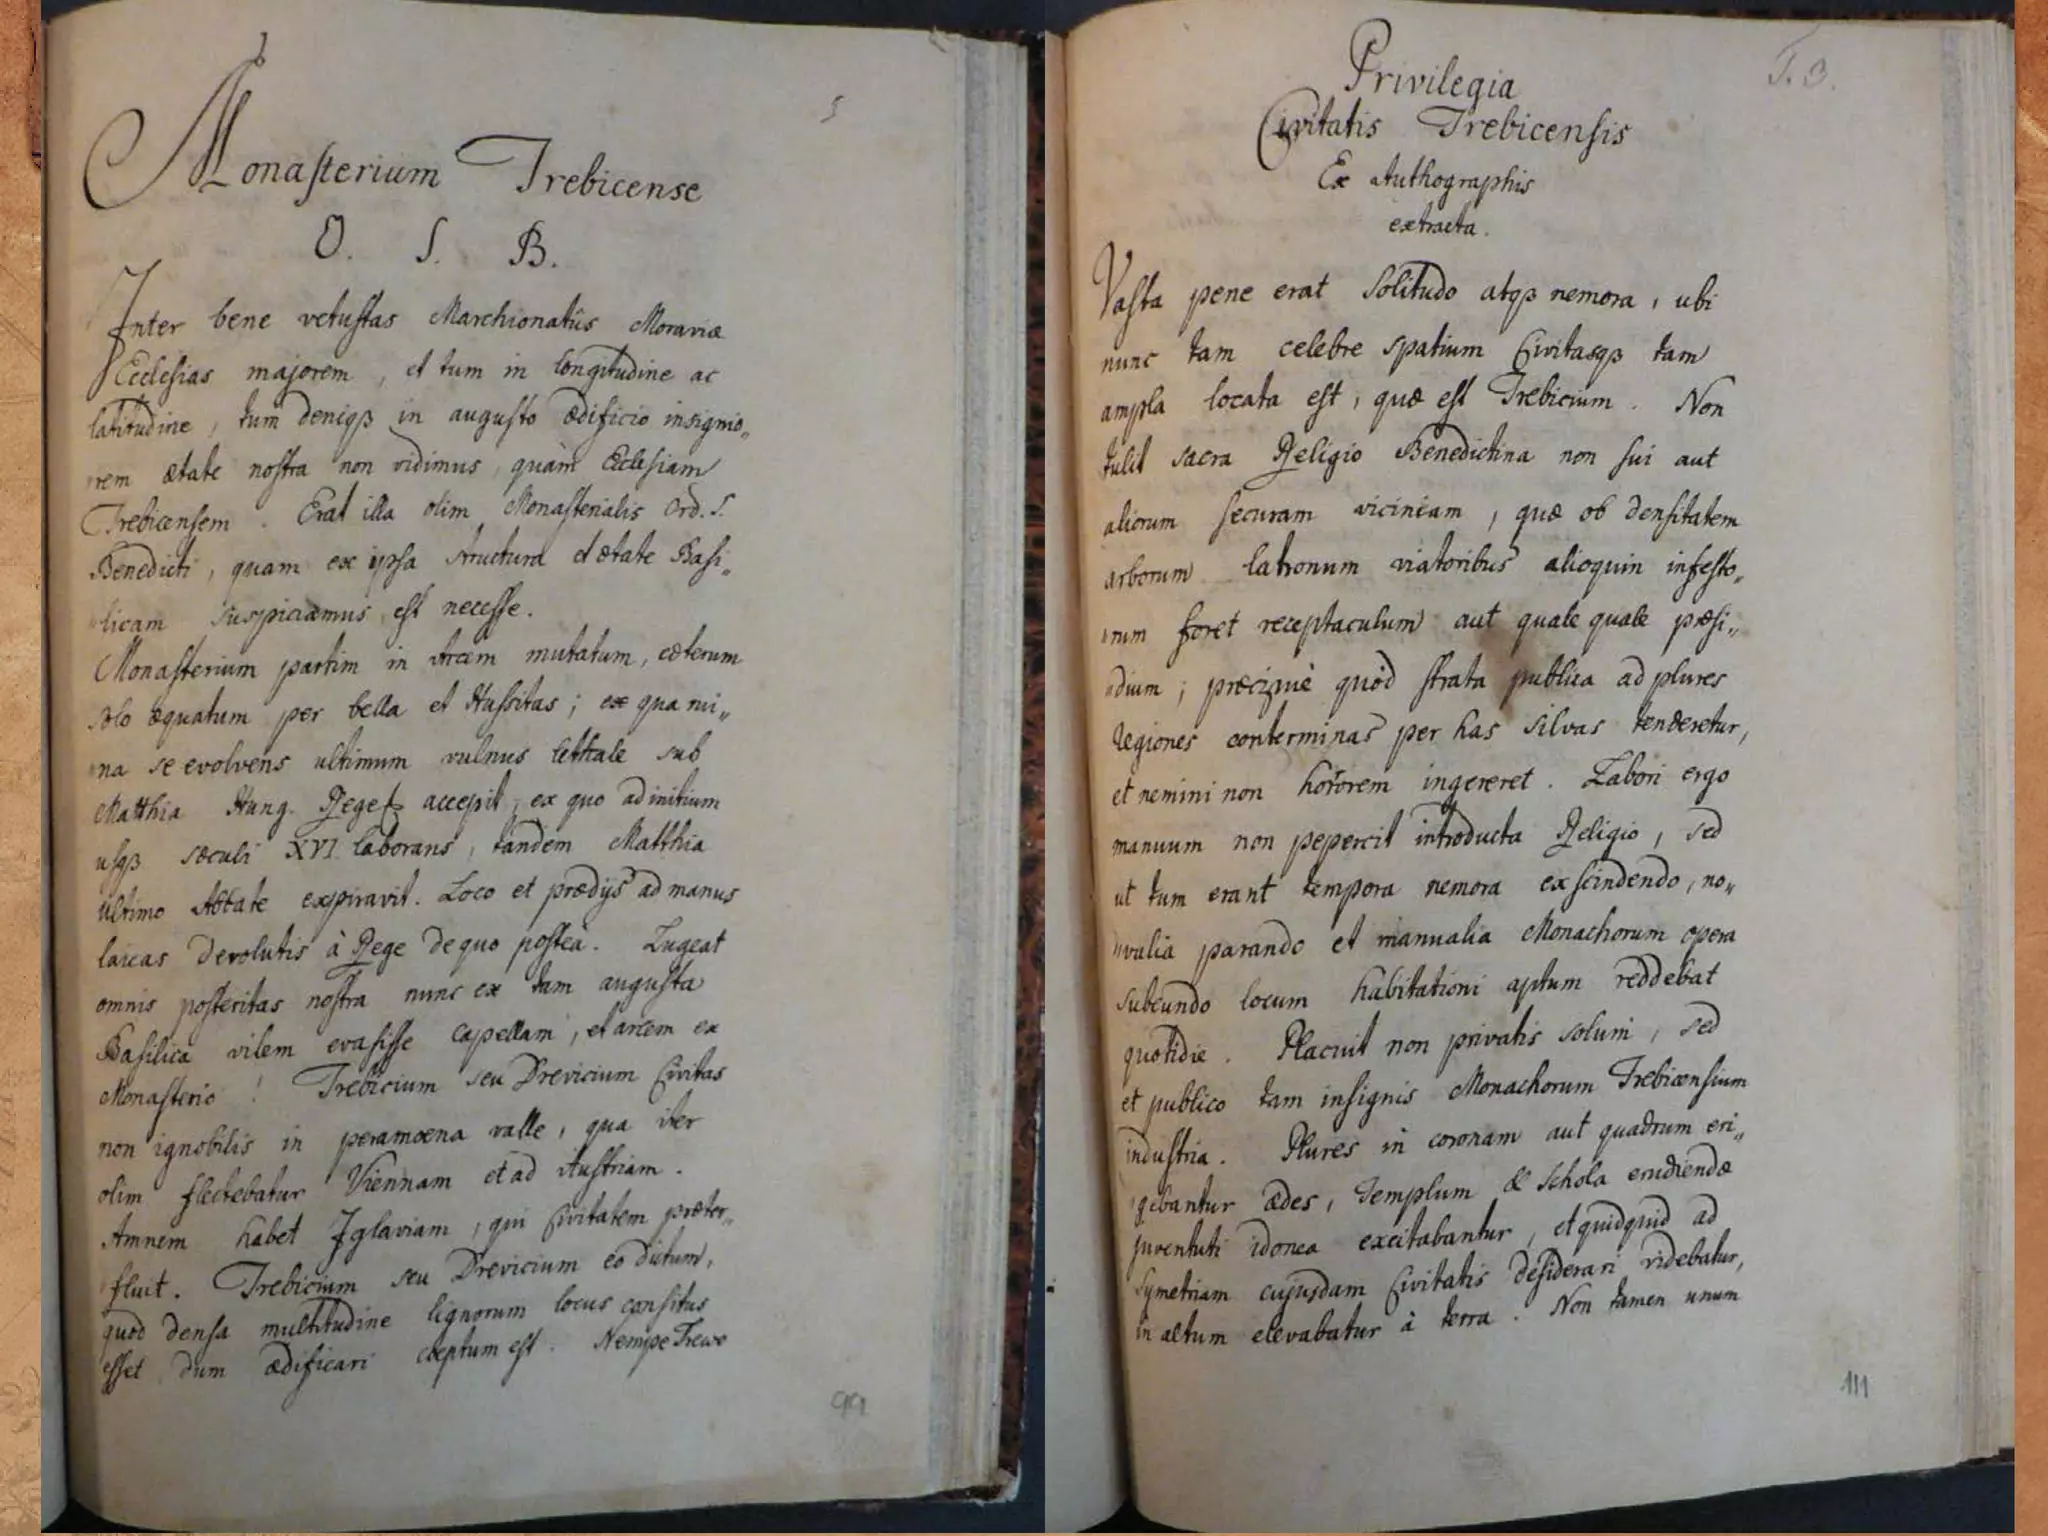 5
Monasterium Trebicense
O. S. B.
Inter bene vetustas Marchionatûs Moraviæ
Ecclesias majorem, et tum in longitudine ac
latitudine, tum deniqß in augusto ædificio insignio„
rem ætate nostra non vidimus, quàm Ecclesiam
Trebicensem. Erat illa olim Monasterialis Ord. S.
Benedicti, quam ex ipsa structura et ætate Basi„
licam suspiciamus est necesse.
Monasterium partim in Arcem mutatum, cæterum
solo æquatum per bella et Hussitas; ex qua rui„
na se evolvens ultimum vulnus lethale sub
Matthia Hung. Rege accepit, ex quo ad initium
usqß sæculi XVI laborans, tandem Matthia
ultimo Abbate expiravit. Loco et prædijs ad manus
laicas devolutis à Rege de quo postea. Lugeat
omnis posteritas nostra nunc ex tam augusta
Basilica vilem evasisse capellam, et arcem ex
Monasterio! Trebicium seu Drevicium Civitas
non ignobilis in peramoena valle, qua iter
olim flectebatur Viennam et ad Austriam.
Amnem habet Iglaviam, qui Civitatem præter„
fluit. Trebicium seu Drevicium eo dictum,
quod densa multitudine lignorum locus consitus
esset dum ædificari coeptum est. Nempe Trewo
99
T. 3.
Privilegia
Civitatis Trebicensis
Ex Authographis
extracta.
Vasta pene erat solitudo atqß nemora, ubi
nunc tam celebre spatium Civitasqß tam
ampla locata est, quæ est Trebicium. Non
tulit sacra Religio Benedictina non sui aut
aliorum securam viciniam, quæ ob densitatem
arborum latronum viatoribus alioquin infesto„
rum foret receptaculum aut quale quale præsi„
dium; præcipuè quòd strata publica ad plures
regiones conterminas per has silvas tenderetur,
et nemini non horrorem ingereret. Labori ergo
manuum non pepercit introducta Religio, sed
ut tum erant tempora nemora exscindendo, no„
valia parando et manualia Monachorum opera
subeundo locum habitationi aptum reddebat
quotidie. Placuit non privatis solum, sed
et publico tam insignis Monachorum Trebicensium
industria. Plures in coronam aut quadrum eri„
gebantur ædes, templum & schola erudiendæ
juventuti idonea excitabantur, et quidquid ad
symetriam cujusdam Civitatis desiderari videbatur,
in altum elevabatur à terra. Non tamen unum
111